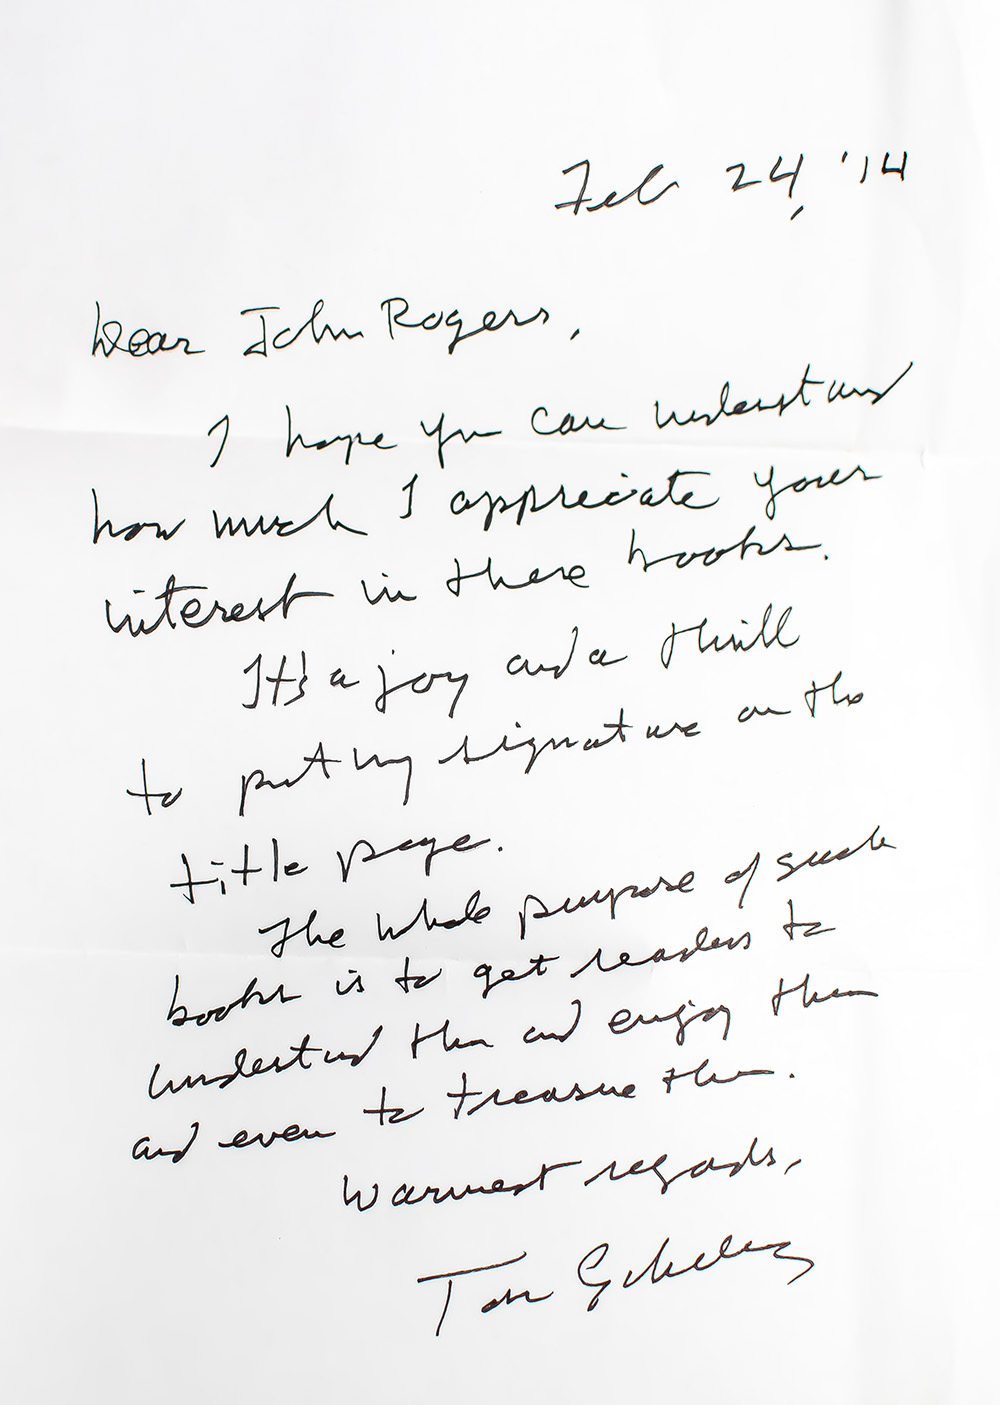 Feb 24, '14
Dear John Rogers,
I hope you can understand
how much I appreciate your
interest in these books.
It's a joy and a thrill
to put my signature on the
title page.
The whole purpose of such
books is to get readers to
understand them and enjoy them
and even to treasure them.
Warmest regards,
Tom